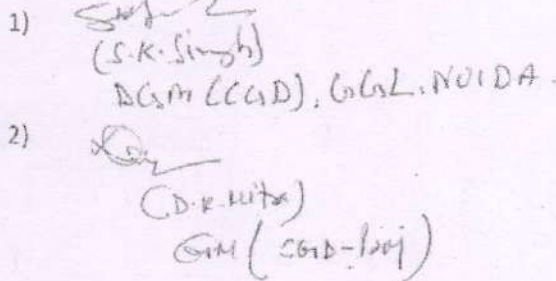 1)
(S.K. Singh)
DGM (CGD), GGL, NOIDA.
2)
(D.K. Mitra)
GM (CGD-Proj)